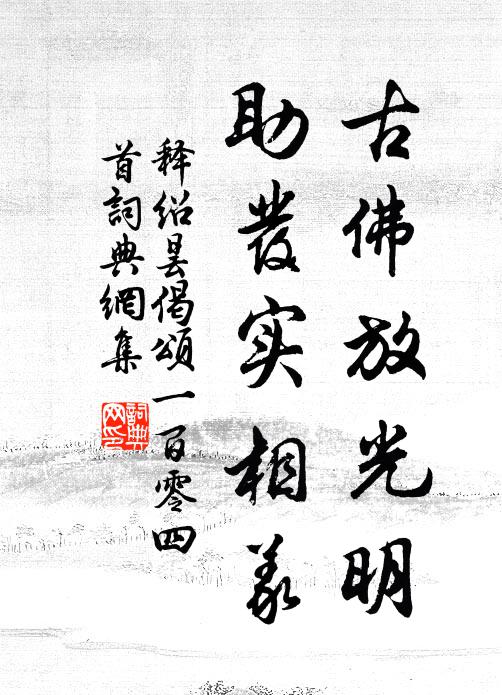 古佛放光明
助發实相義
释绍昙偈頌一百零四
首詞典網集
詞典网印